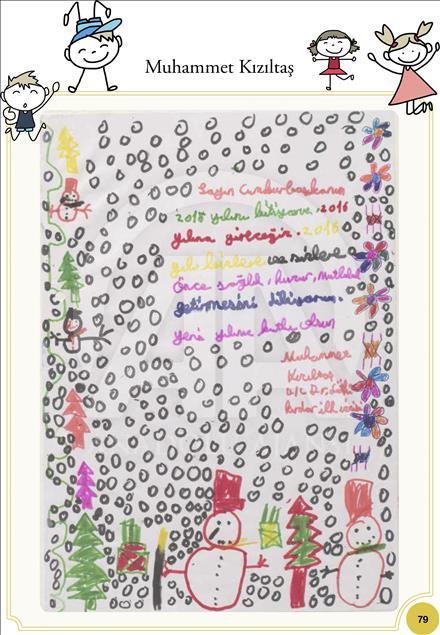 Muhammet Kızıltaş
Sayın Cumhurbaşkanım
2015 yılını bitiyoruz. 2016
yılına gireceğiz. 2016
yılı bizlere ve sizlere
Önce sağlık, huzur, mutluluk
getirmesini diliyorum.
yeni yılınız kutlu olsun
Muhammet
Kızıltaş
79